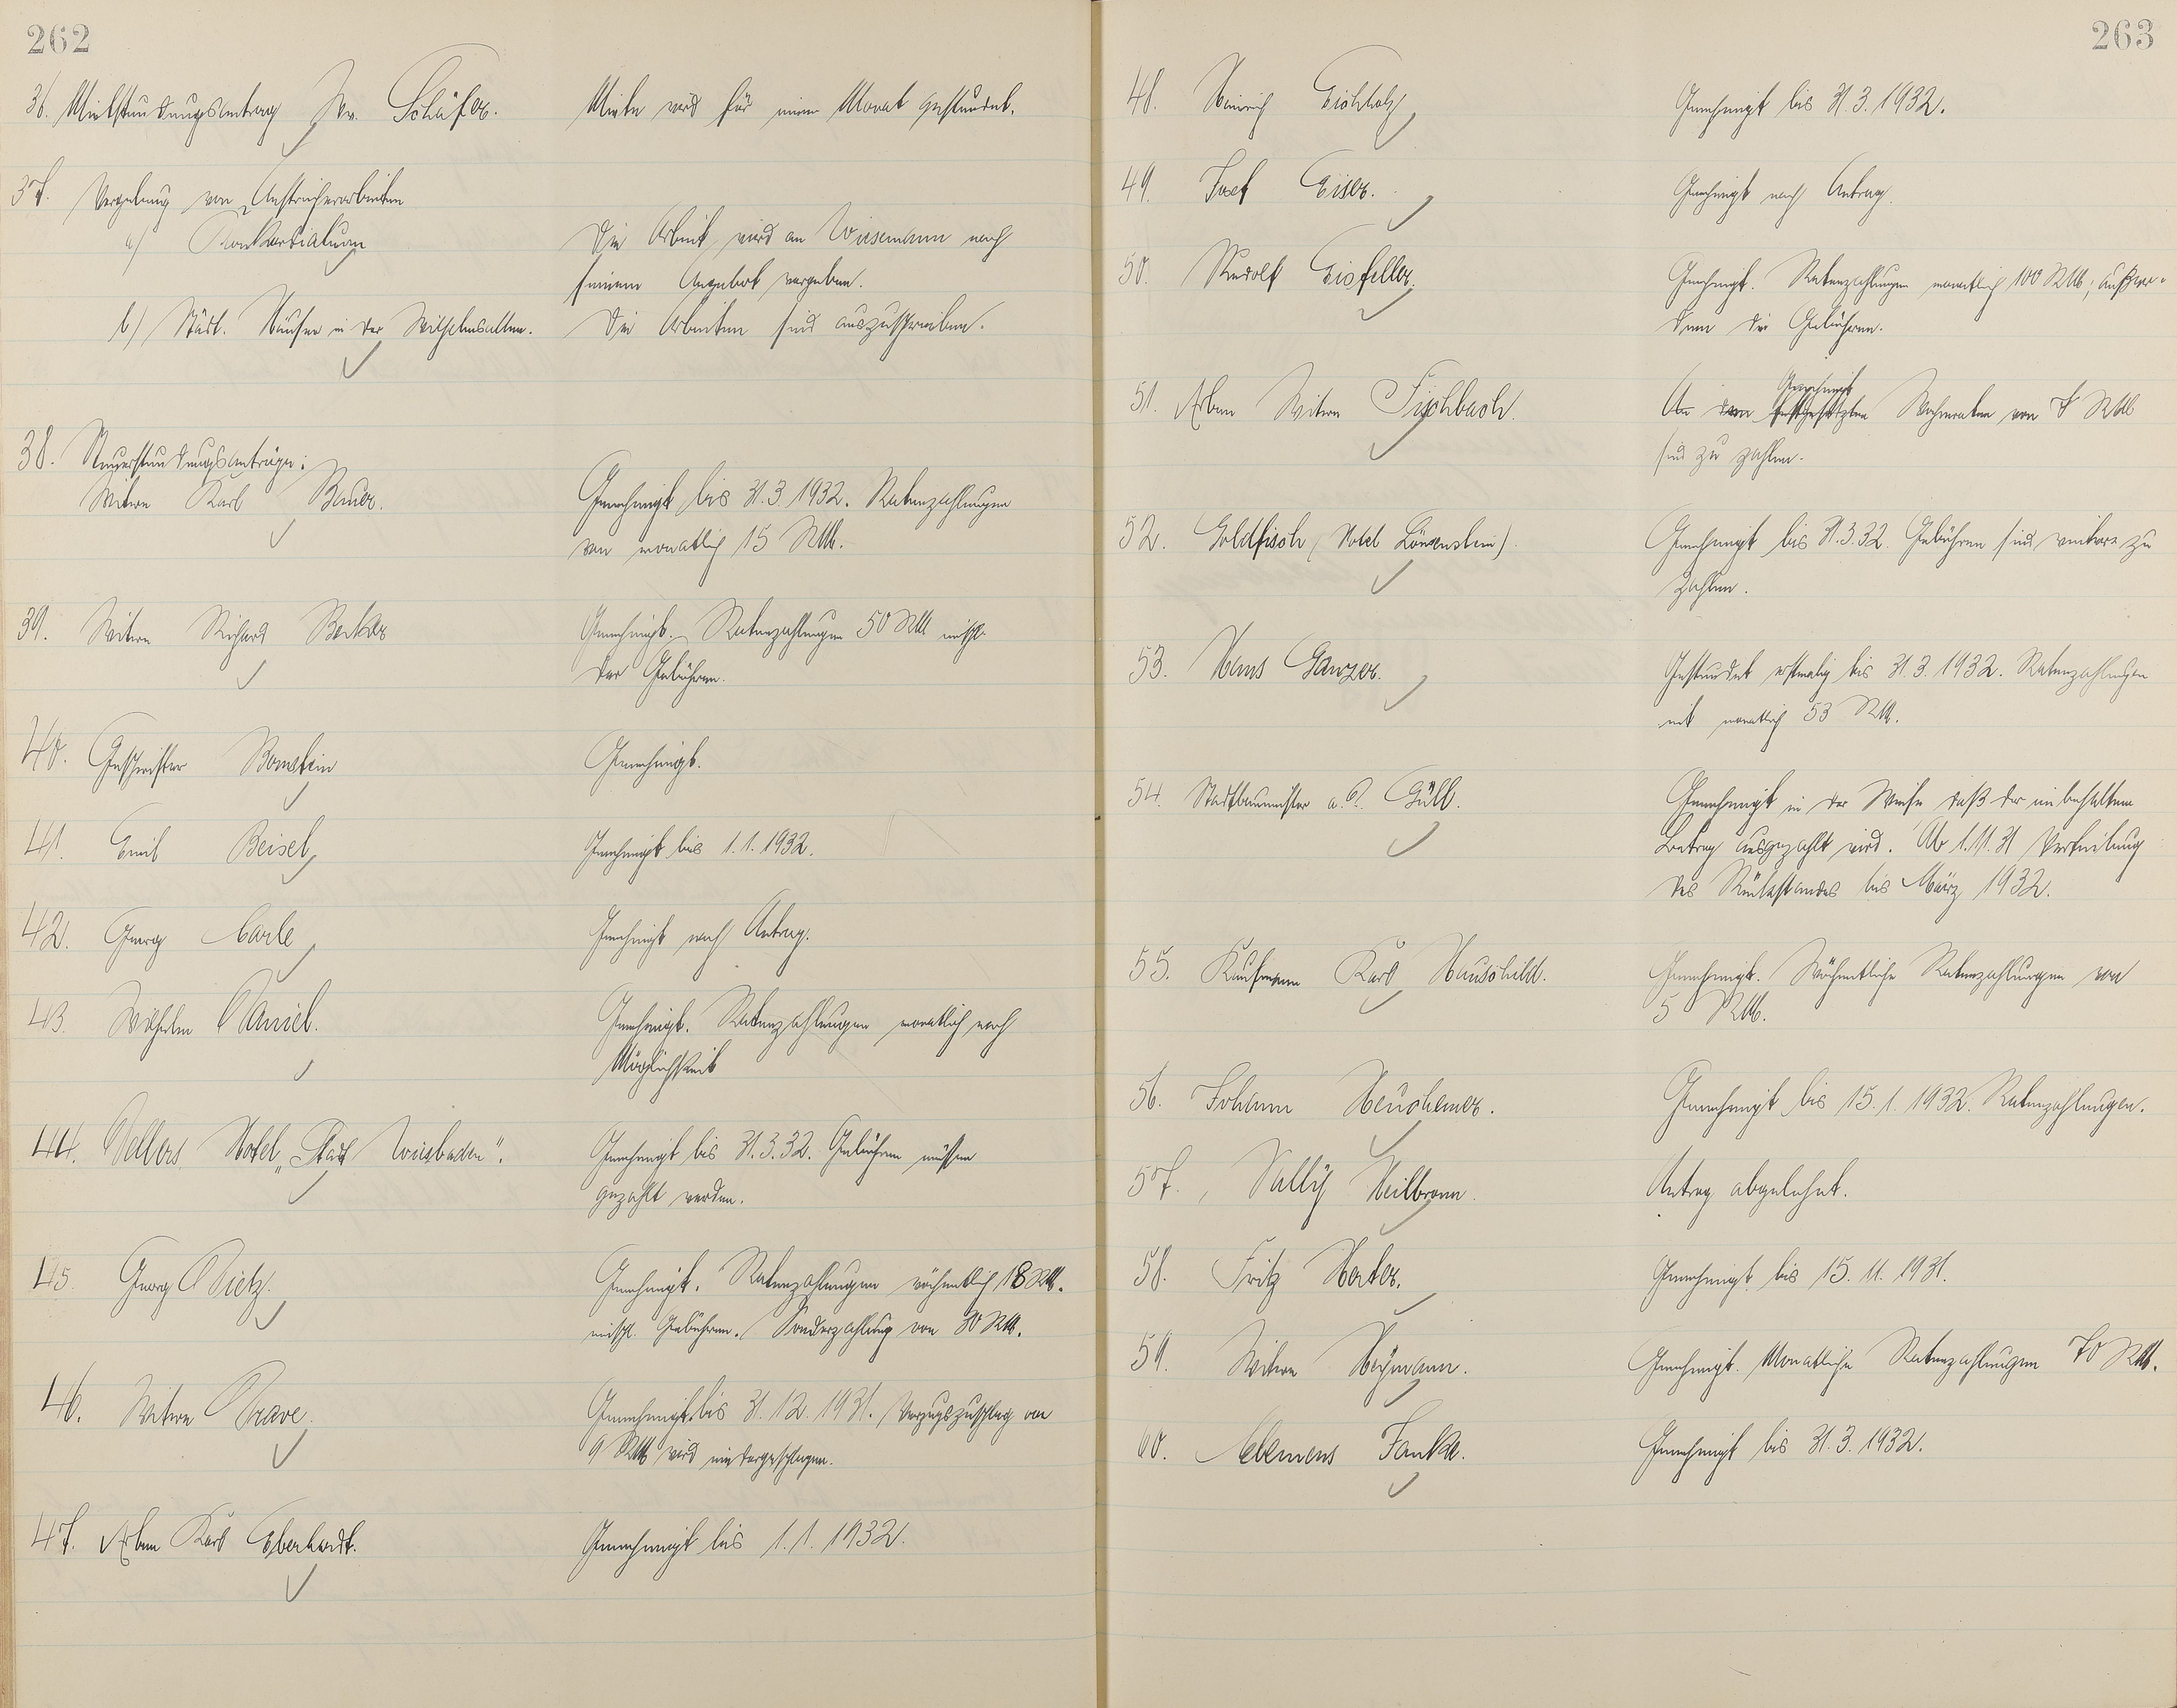 262
36. Mietstundungsantrag Schäfer.
Miete wird für einen Monat gestundet.
37. Vergebung von Anstreicherarbeiten
a)
Die Arbeit wird an Wiesemann nach
seinem Angebot vergeben.
b) Städt. Häuser in der Wilhelmsallee.
Die Arbeiten sind auszuschreiben.
38. Steuerstundungsanträge:
Witwe Karl Bauer.
Genehmigt bis 31.3.1932. Ratenzahlungen
von monatlich 15 RM.
39. Witwe Richard Becker
Genehmigt. Ratenzahlungen 50 RM einschl.
der Gebühren.
40. Geschwister Bornstein
Genehmigt.
41. Emil Beisel
Genehmigt bis 1.1.1932.
42. Georg Carle
Genehmigt nach Antrag.
43. Wilhelm Daniel.
Genehmigt. Ratenzahlungen monatlich nach
Möglichkeit
44. Dellers Hotel „Stadt Wiesbaden".
Genehmigt bis 31.3.32. Gebühren müssen
gezahlt werden.
45. Georg Dietz.
Genehmigt. Ratenzahlungen wöchentlich 18 RM.
einschl. Gebühren. Sonderzahlung von 30 RM.
46. Witwe Drave.
Genehmigt bis 31.12.1931. Verzugszuschlag von
9 RM wird niedergeschlagen.
47. Erben Karl Eberhardt.
Genehmigt bis 1.1.1932.
263
48. Heinrich Eichholz
Genehmigt bis 31.3.1932.
49. Josef Eiser.
Genehmigt nach Antrag.
50. Rudolf Eisfeller.
Genehmigt. Ratenzahlungen monatlich 100 RM; außer-
dem die Gebühren.
51. Erben Witwe Fischbach.
Genehmigt
Die festgesetzten Wochenraten von 7 RM
sind zu zahlen.
52. Goldfisch (Hotel Löwenstein)
Genehmigt bis 31.3.32. Gebühren sind weiter zu
zahlen.
53. Hans Ganzer.
Gestundet erstmalig bis 31.3.1932. Ratenzahlungen
mit monatlich 53 RM.
54. Stadtbaumeister a.D. Güll.
Genehmigt in der Weise daß der einbehaltene
Betrag ausgezahlt wird. Ab 1.11.31 Verteilung
des Rückstandes bis März 1932.
55. Kaufmann Karl Hauschild.
Genehmigt. Wöchentliche Ratenzahlungen von
5 RM.
56. Johann Heuchemer.
Genehmigt bis 15.1.1932. Ratenzahlungen.
57. Sally Heilbronn.
Antrag abgelehnt.
58. Fritz Herter.
Genehmigt bis 15.11.1931.
59. Witwe Heymann.
Genehmigt. Monatliche Ratenzahlungen 70 RM.
60. Clemens Janke.
Genehmigt bis 31.3.1932.